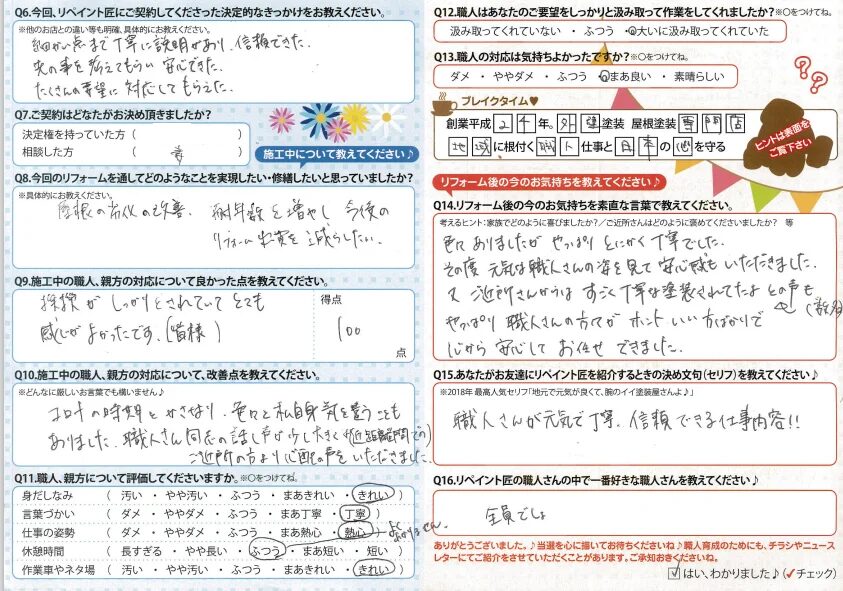 Q6.今回、リペイント匠にご契約してくださった決定的なきっかけをお教えください。
※他のお店との違い等も明確、具体的にお教えください。
細かい点まで丁寧に説明があり、信頼できた。
先の事を考えてもらい安心できた。
たくさんの要望に対応してもらえた。
Q7.ご契約はどなたがお決め頂きましたか?
決定権を持っていた方 ( )
相談した方 ( 妻 )
施工中について教えてください♪
Q8.今回のリフォームを通してどのようなことを実現したい・修繕したいと思っていましたか?
※具体的にお教えください。
屋根の劣化の改善、耐年数を増やし今後の
リフォーム出費を減らしたい。
Q9.施工中の職人、親方の対応について良かった点を教えてください。
挨拶がしっかりとされていてとても
感じがよかったです。(皆様)
得点
100
点
Q10.施工中の職人、親方の対応について、改善点を教えてください。
※どんなに厳しいお言葉でも構いません♪
コロナの時期とかさなり、色々と私自身気を遣うことも
ありました。職人さん同志の話し声が少し大きく(近距離間での)
ご近所の方より心配の声をいただきました。
Q11.職人、親方について評価してくださいますか。※○をつけてね。
身だしなみ ( 汚い ・ やや汚い ・ ふつう ・ まあきれい ・ きれい )
言葉づかい ( ダメ ・ ややダメ ・ ふつう ・ まあ丁寧 ・ 丁寧 )
仕事の姿勢 ( ダメ ・ ややダメ ・ ふつう ・ まあ熱心 ・ 熱心 )
休憩時間 ( 長すぎる ・ やや長い ・ ふつう ・ まあ短い ・ 短い )
作業車やネタ場 ( 汚い ・ やや汚い ・ ふつう ・ まあきれい ・ きれい )
Q12.職人はあなたのご要望をしっかりと汲み取って作業をしてくれましたか?※○をつけてね。
汲み取ってくれていない ・ ふつう ・ 大いに汲み取ってくれていた
Q13.職人の対応は気持ちよかったですか?※○をつけてね。
ダメ ・ ややダメ ・ ふつう ・ まあ良い ・ 素晴らしい
ブレイクタイム♥
創業平成24年。外壁塗装 屋根塗装専門店
地域に根付く職人仕事と日本の心を守る
ヒントは表面を
ご覧下さい
リフォーム後の今のお気持ちを教えてください♪
Q14.リフォーム後の今のお気持ちを素直な言葉で教えてください。
考えるヒント:家族でどのように喜びましたか?/ご近所さんはどのように褒めてくださいましたか? 等
色々ありましたがやっぱりとにかく丁寧でした。
その度元気な職人さんの姿を見て安心感もいただきました。
又ご近所さんからはすごく丁寧な塗装されてたよとの声も(数多)
やっぱり職人さんの方てがホントいい方ばかりで
心から安心してお任せできました。
Q15.あなたがお友達にリペイント匠を紹介するときの決め文句(セリフ)を教えてください♪
※2018年 最高人気セリフ「地元で元気が良くて、腕のイイ塗装屋さんよ♪」
職人さんが元気で丁寧、信頼できる仕事内容!!
Q16.リペイント匠の職人さんの中で一番好きな職人さんを教えてください♪
全員でしょ
ありがとうございました。♪当選を心に描いてお待ちくださいね♪職人育成のためにも、チラシやニュース
レターにてご紹介をさせていただくことがあります。ご承知おきくださいね。
✓はい、わかりました♪(✓チェック)